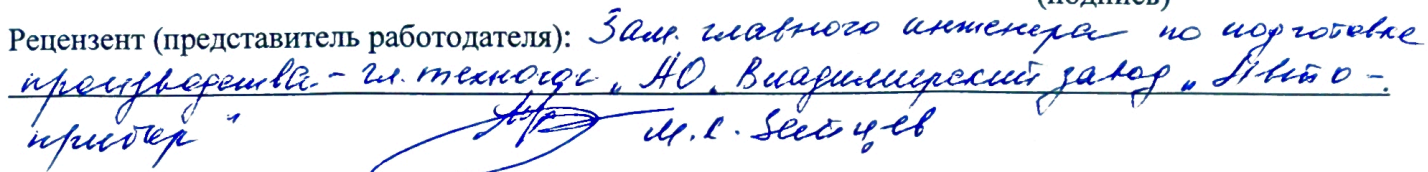 (подпись)
Рецензент (представитель работодателя): Зам. главного инженера по подготовке
производства - гл. технолог „АО„ Владимирский завод „Авто-
прибор"
М.С. Зайцев